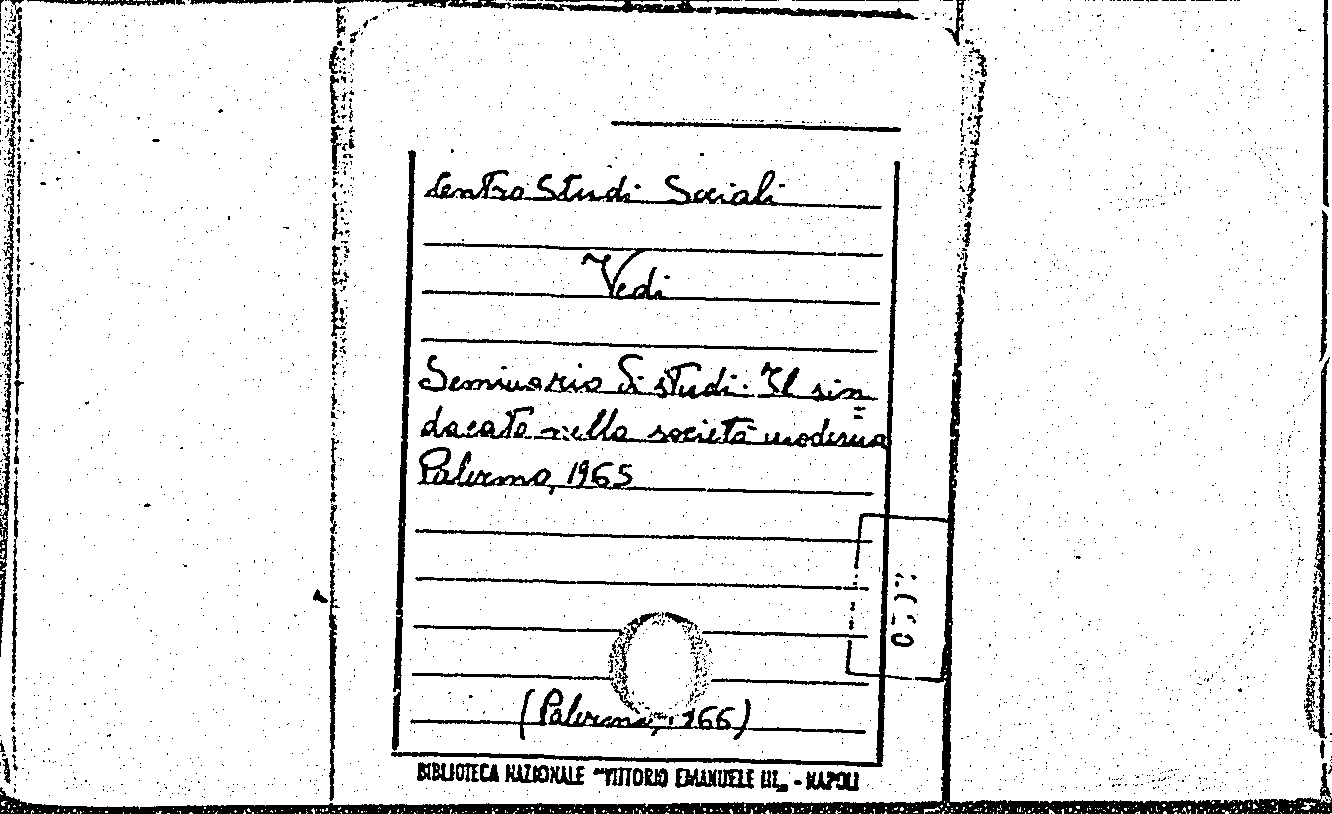 Centro Studi Sociali
Vedi
Seminario di studi. Il sin=
dacato nella società moderna
Palermo, 1965
(Palermo, 1966)
BIBLIOTECA NAZIONALE "VITTORIO EMANUELE III„ - NAPOLI